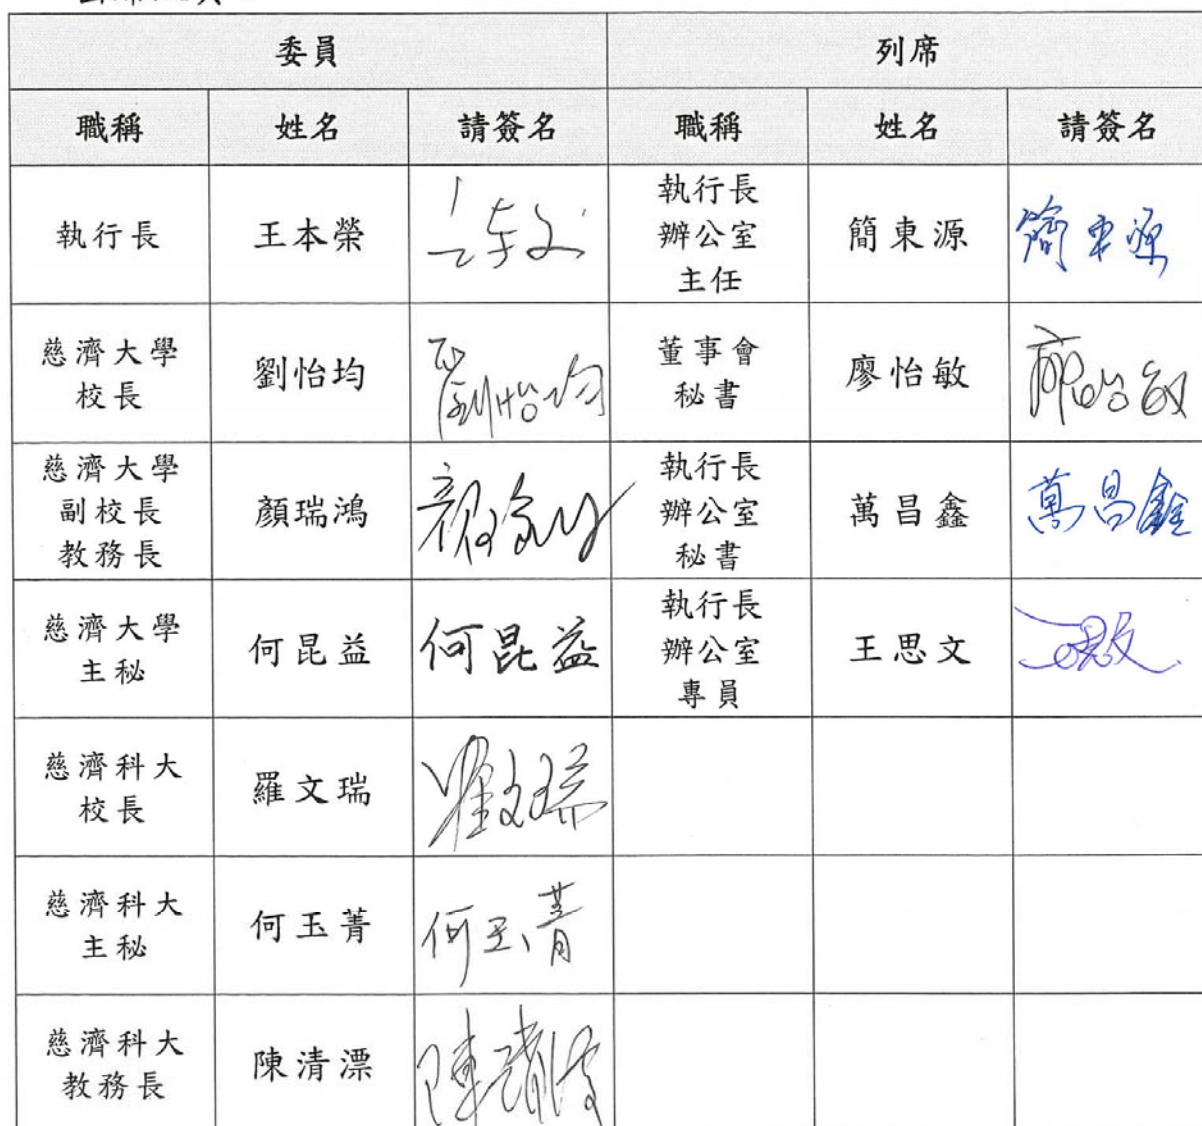 委員 列席
職稱 姓名 請簽名 職稱 姓名 請簽名
執行長 王本榮 執行長
辦公室
主任 簡東源 簡東源
慈濟大學
校長 劉怡均 劉怡均 董事會
秘書 廖怡敏 廖怡敏
慈濟大學
副校長
教務長 顏瑞鴻 執行長
辦公室
秘書 萬昌鑫 萬昌鑫
慈濟大學
主秘 何昆益 何昆益 執行長
辦公室
專員 王思文
慈濟科大
校長 羅文瑞 羅文瑞
慈濟科大
主秘 何玉菁 何玉菁
慈濟科大
教務長 陳清漂